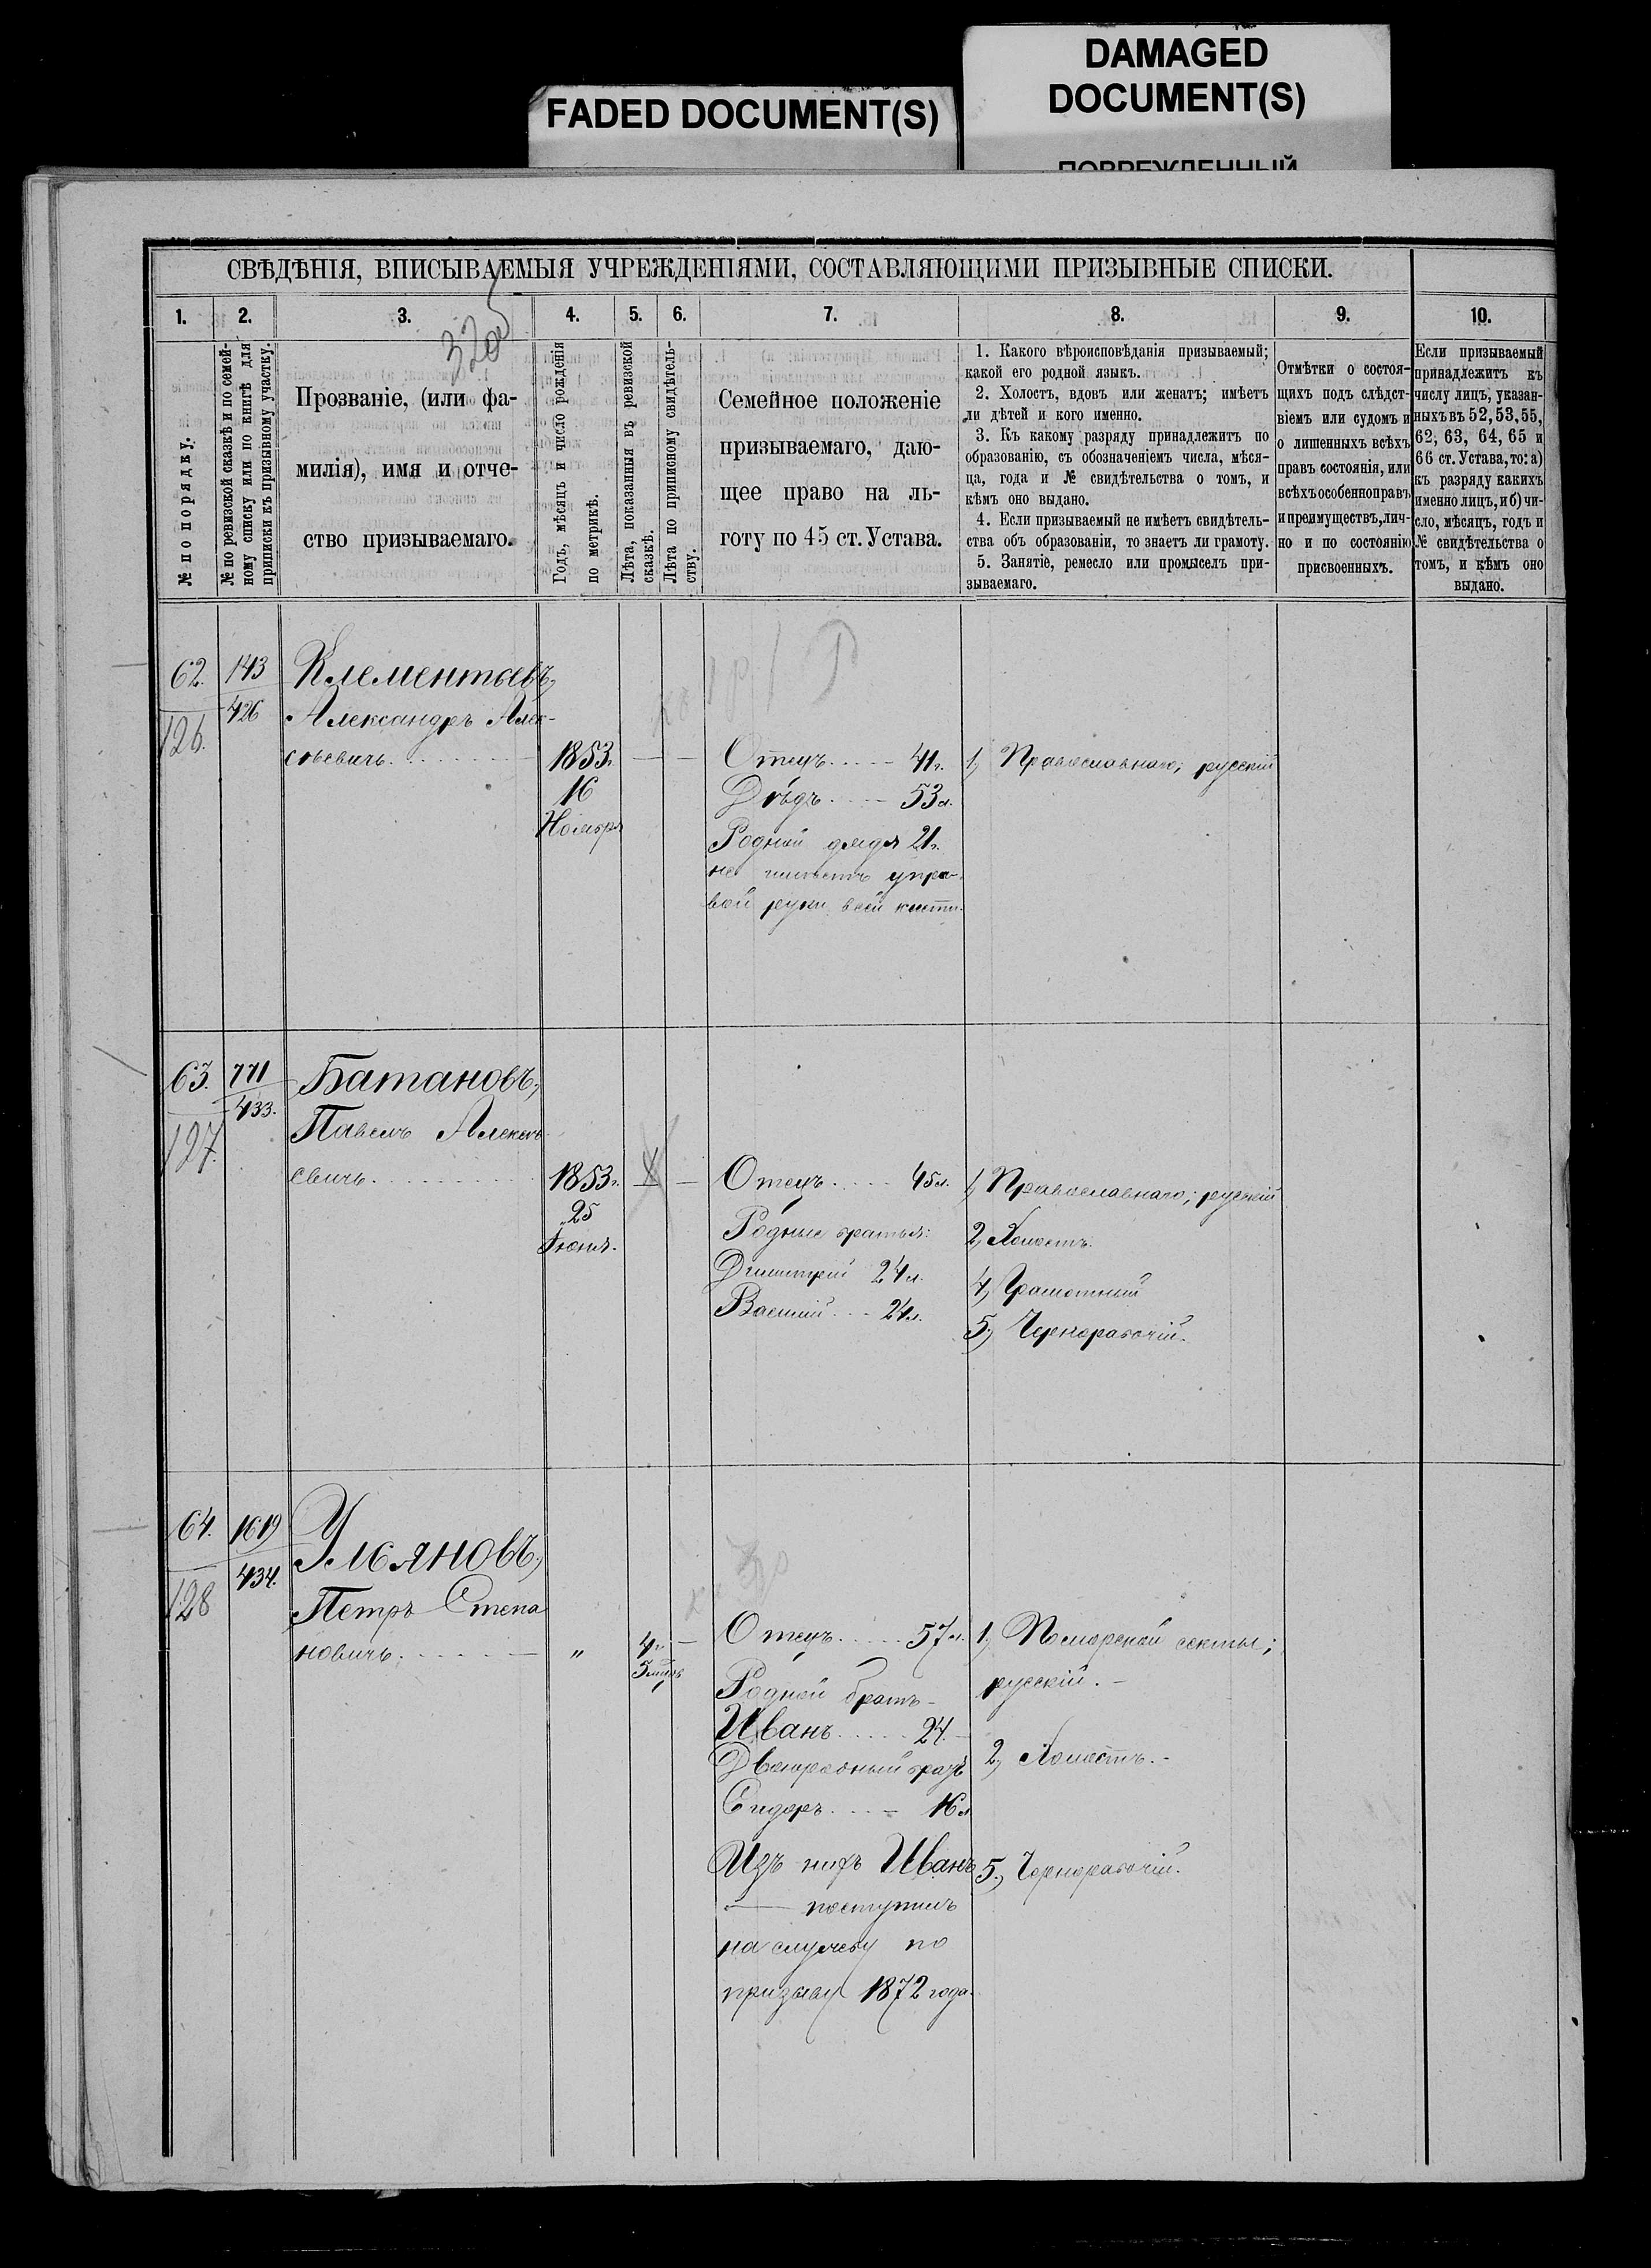 DAMAGED
DOCUMENT(S)
FADED DOCUMENT(S)
ПОВРЕЖДЕННЫЙ
СВѢДѢНІЯ, ВПИСЫВАЕМЫЯ УЧРЕЖДЕНІЯМИ, СОСТАВЛЯЮЩИМИ ПРИЗЫВНЫЕ СПИСКИ.
1. 2. 3. 4. 5. 6. 7. 8. 9. 10.
№ по порядку.
№ по ревизской сказкѣ и по семей-
ному списку или по книгѣ для
приписки къ призывному участку.
Прозваніе, (или фа-
милія), имя и отче-
ство призываемаго.
Годъ, мѣсяцъ и число рожденія
по метрикѣ.
Лѣта, показанныя въ ревизской
сказкѣ.
Лѣта по приписному свидѣтель-
ству.
Семейное положеніе
призываемаго, даю-
щее право на ль-
готу по 45 ст. Устава.
1. Какого вѣроисповѣданія призываемый;
какой его родной языкъ.
2. Холостъ, вдовъ или женатъ; имѣетъ
ли дѣтей и кого именно.
3. Къ какому разряду принадлежитъ по
образованію, съ обозначеніемъ числа, мѣся-
ца, года и № свидѣтельства о томъ, и
кѣмъ оно выдано.
4. Если призываемый не имѣетъ свидѣтель-
ства объ образованіи, то знаетъ ли грамоту.
5. Занятіе, ремесло или промыселъ при-
зываемаго.
Отмѣтки о состоя-
щихъ подъ слѣдст-
віемъ или судомъ и
о лишенныхъ всѣхъ
правъ состоянія, или
всѣхъ особенно правъ
и преимуществъ, лич-
но и по состоянію
присвоенныхъ.
Если призываемый
принадлежитъ къ
числу лицъ, указан-
ныхъ въ 52, 53, 55,
62, 63, 64, 65 и
66 ст. Устава, то: а)
къ разряду какихъ
именно лицъ, и б) чи-
сло, мѣсяцъ, годъ и
№ свидѣтельства о
томъ, и кѣмъ оно
выдано.
62.
126.
143
426
Клементьевъ,
Александръ Алек-
сѣевичъ
1853г.
16
Ноября
Отецъ 41г.
Дѣдъ 53л.
Родной дядя 21г.
не имѣетъ у пра-
вой руки всей кисти.
1, Православнаго; русскій
63.
127.
771
433.
Батановъ,
Павелъ Алексѣ-
евичъ
1853г.
25
Іюня.
Отецъ 45л.
Родные братья:
Димитрій 24л.
Василій 24л.
1, Православнаго; русскій
2, Холостъ.
4, Грамотный
5, Чернорабочій.
64.
128
1619
434.
Ульяновъ,
Петръ Степа
новичъ
"
4г.
5 мѣсъ
Отецъ 57л.
Родной братъ -
Иванъ 24.
Двоюродный братъ
Сидоръ 16л
Изъ нихъ Иванъ
поступилъ
на службу по
призыву 1872 года.
1, Поморской секты;
русскій. -
2, Холостъ. -
5, Чернорабочій.